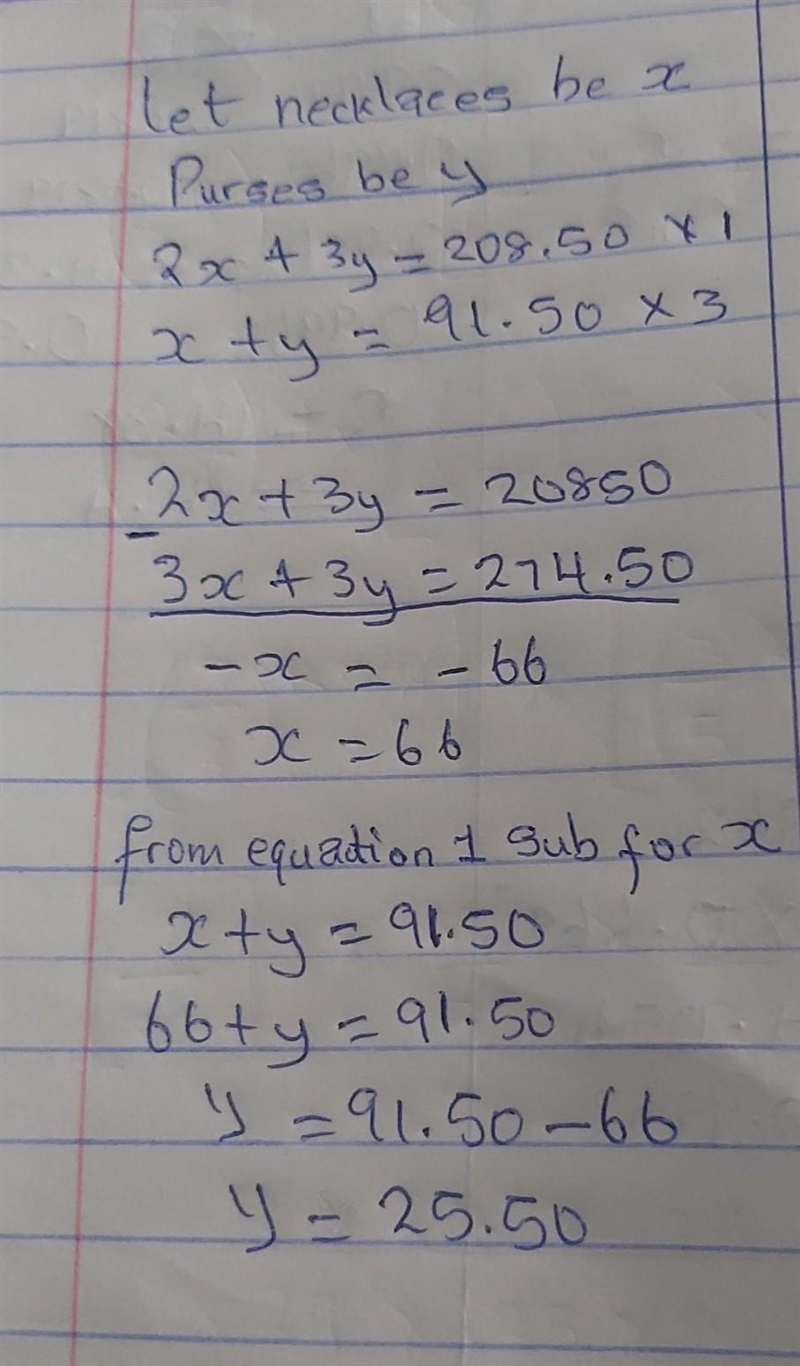 let necklaces be x
Purses be y
2x + 3y = 208.50 × 1
x + y = 91.50 × 3
2x + 3y = 20850
- 3x + 3y = 274.50
-x = -66
x = 66
from equation 1 sub for x
x + y = 91.50
66 + y = 91.50
y = 91.50 - 66
y = 25.50